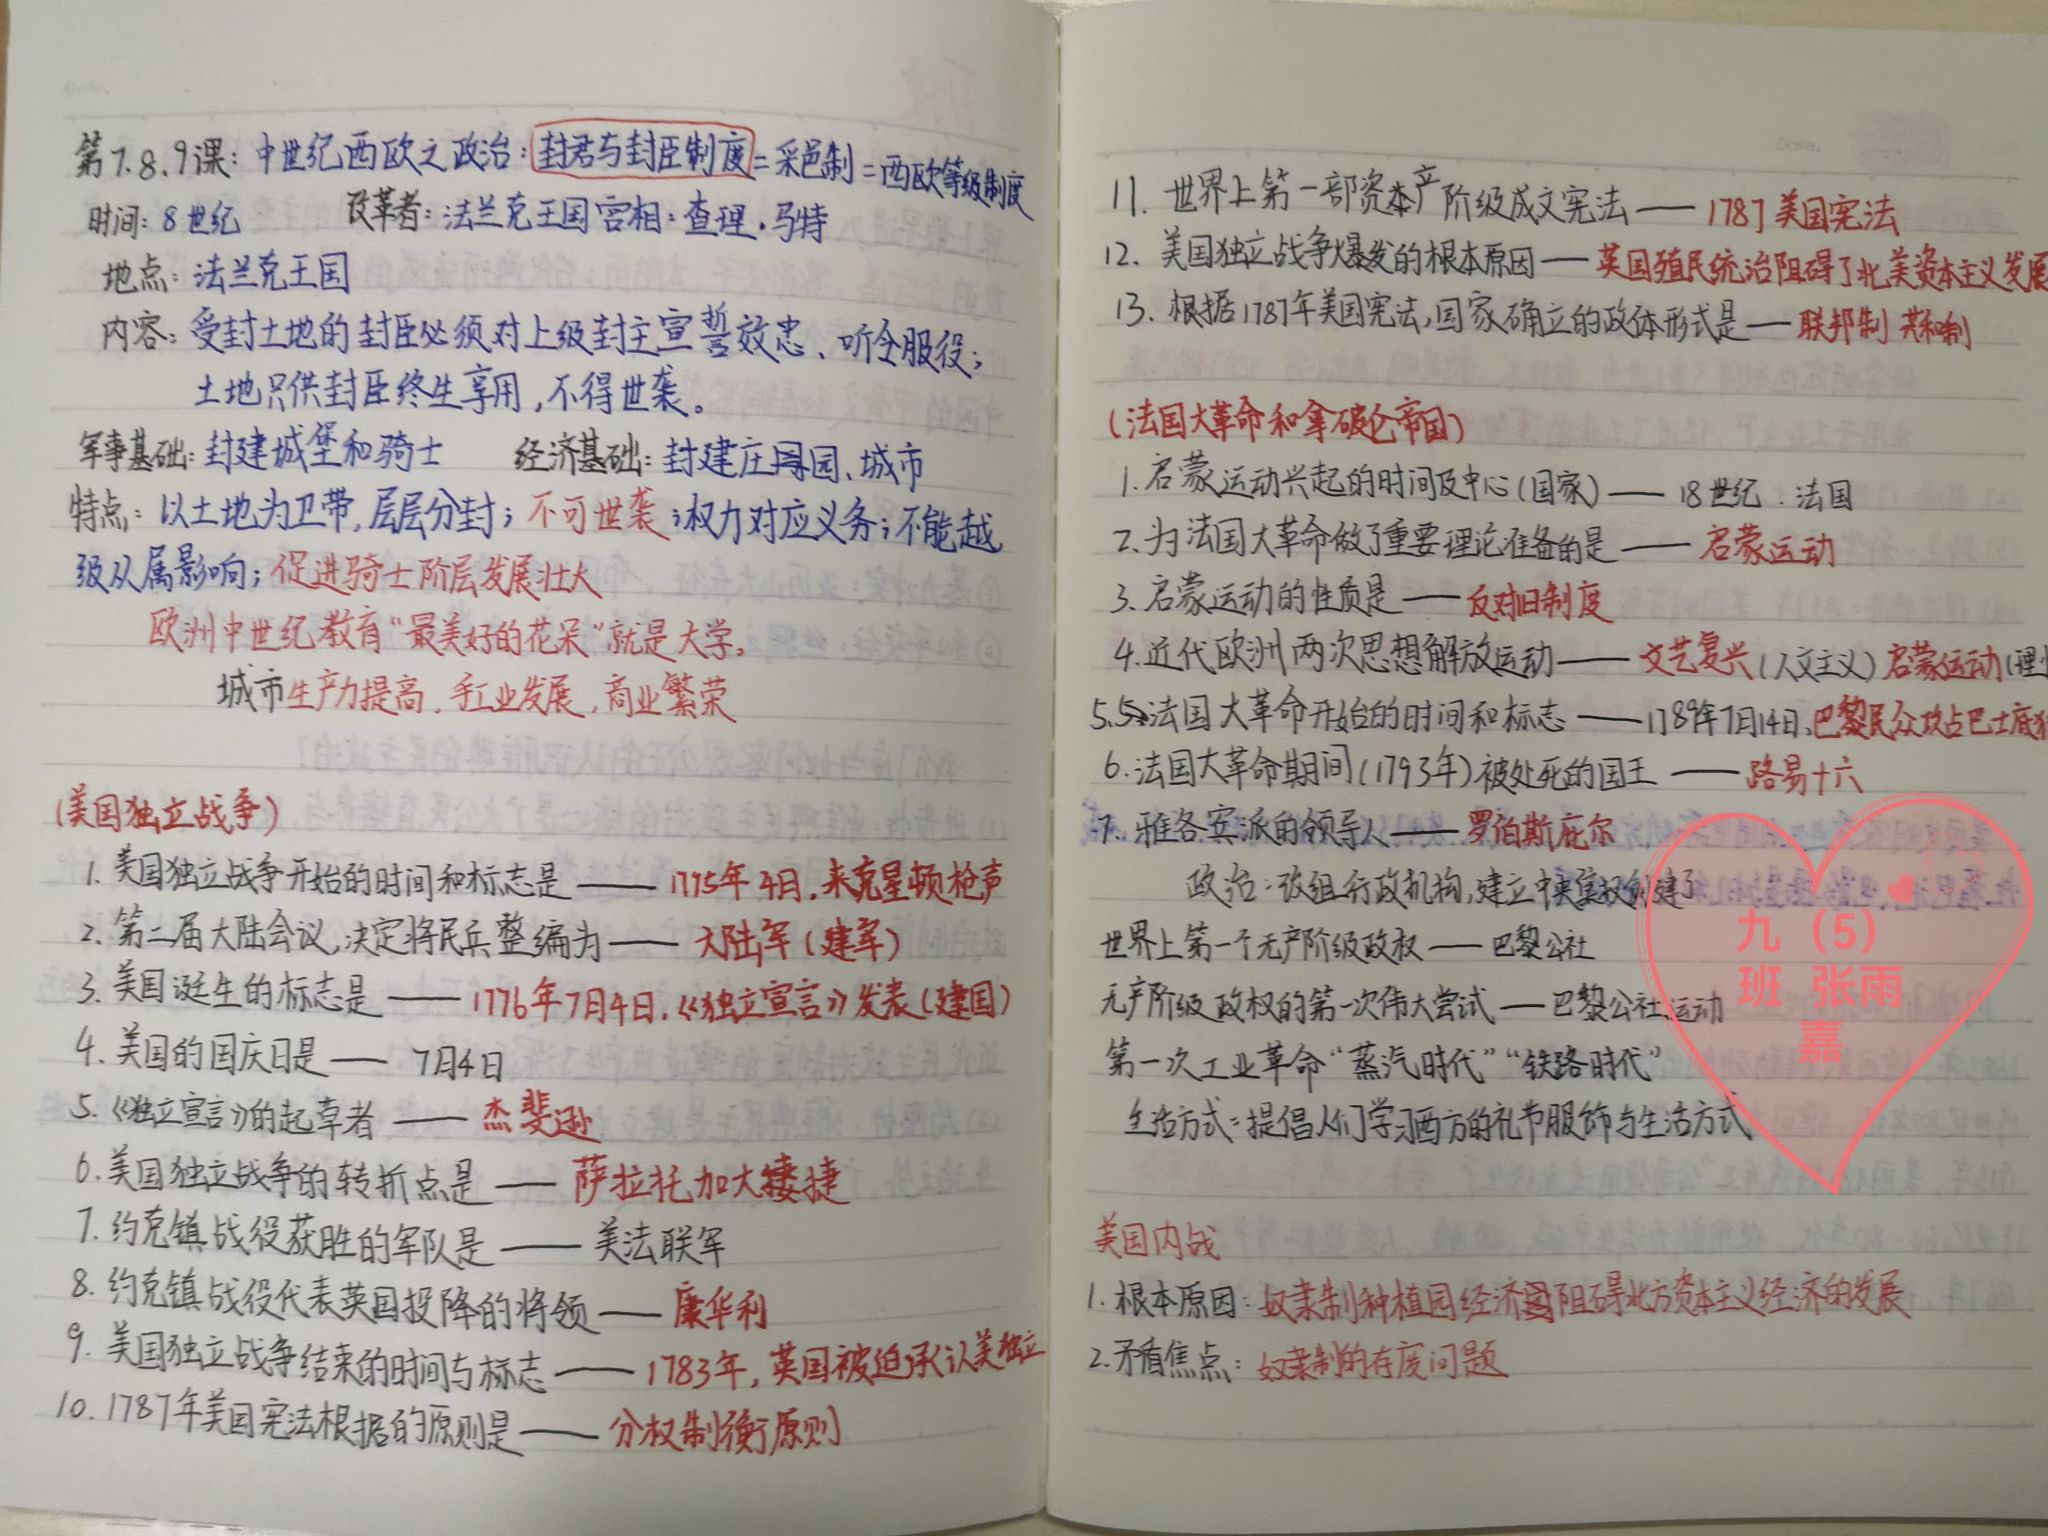 第7.8.9课：中世纪西欧之政治：封君与封臣制度=采邑制=西欧等级制度
时间：8世纪 改革者：法兰克王国宫相：查理·马特
地点：法兰克王国
内容：受封土地的封臣必须对上级封主宣誓效忠、听令服役；
土地只供封臣终生享用，不得世袭。
军事基础：封建城堡和骑士 经济基础：封建庄园、城市
特点：以土地为卫带，层层分封；不可世袭；权力对应义务；不能越
级从属影响；促进骑士阶层发展壮大
欧洲中世纪教育“最美好的花朵”就是大学。
城市生产力提高，手工业发展，商业繁荣
（美国独立战争）
1. 美国独立战争开始的时间和标志是——1775年4日，来克星顿枪声
2. 第二届大陆会议，决定将民兵整编为——大陆军（建军）
3. 美国诞生的标志是——1776年7月4日，《独立宣言》发表（建国）
4. 美国的国庆日是——7月4日
5.《独立宣言》的起草者——杰斐逊
6. 美国独立战争的转折点是——萨拉托加大捷
7. 约克镇战役获胜的军队是——美法联军
8. 约克镇战役代表英国投降的将领——康华利
9. 美国独立战争结束的时间与标志——1783年，英国被迫承认美独立
10. 1787年美国宪法根据的原则是——分权制衡原则
11. 世界上第一部资本产阶级成文宪法——1787美国宪法
12. 美国独立战争爆发的根本原因——英国殖民统治阻碍了北美资本主义发展
13. 根据1787年美国宪法，国家确立的政体形式是——联邦制 共和制
（法国大革命和拿破仑帝国）
1. 启蒙运动兴起的时间及中心（国家）——18世纪．法国
2. 为法国大革命做了重要理论准备的是——启蒙运动
3. 启蒙运动的性质是——反对旧制度
4. 近代欧洲两次思想解放运动——文艺复兴（人文主义）启蒙运动（理
5. 法国大革命开始的时间和标志——1789年7月14日，巴黎民众攻占巴士底
6. 法国大革命期间（1793年）被处死的国王——路易十六
7. 雅各宾派的领导人——罗伯斯庇尔
政治：改组行政机构，建立中央集权
世界上第一个无产阶级政权——巴黎公社
无产阶级政权的第一次伟大尝试——巴黎公社运动
第一次工业革命“蒸汽时代”“铁路时代”
生活方式：提倡人们学习西方的礼节服饰与生活方式
美国内战
1. 根本原因：奴隶制种植园经济阻碍北方资本主义经济的发展
2. 矛盾焦点：奴隶制的存废问题
九（5）
班 张雨
嘉